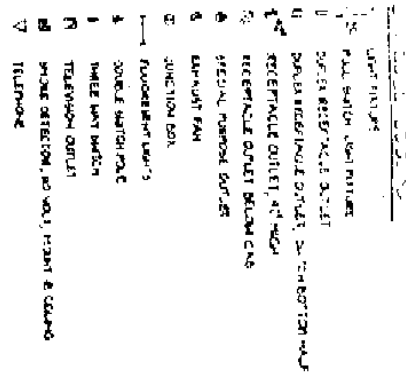 LIGHT FIXTURE
PULL SWITCH LIGHT FIXTURE
DUPLEX RECEPTACLE OUTLET
DUPLEX RECEPTACLE OUTLET, SWITCH BOTTOM HALF
RECEPTACLE OUTLET, 42" HIGH
RECEPTACLE OUTLET BELOW CAB
SPECIAL PURPOSE OUTLET
EXHAUST FAN
JUNCTION BOX
FLUORESCENT LIGHTS
DOUBLE SWITCH POLE
THREE WAY SWITCH
TELEVISION OUTLET
SMOKE DETECTOR, 110 VOLT, MOUNT @ CEILING
TELEPHONE